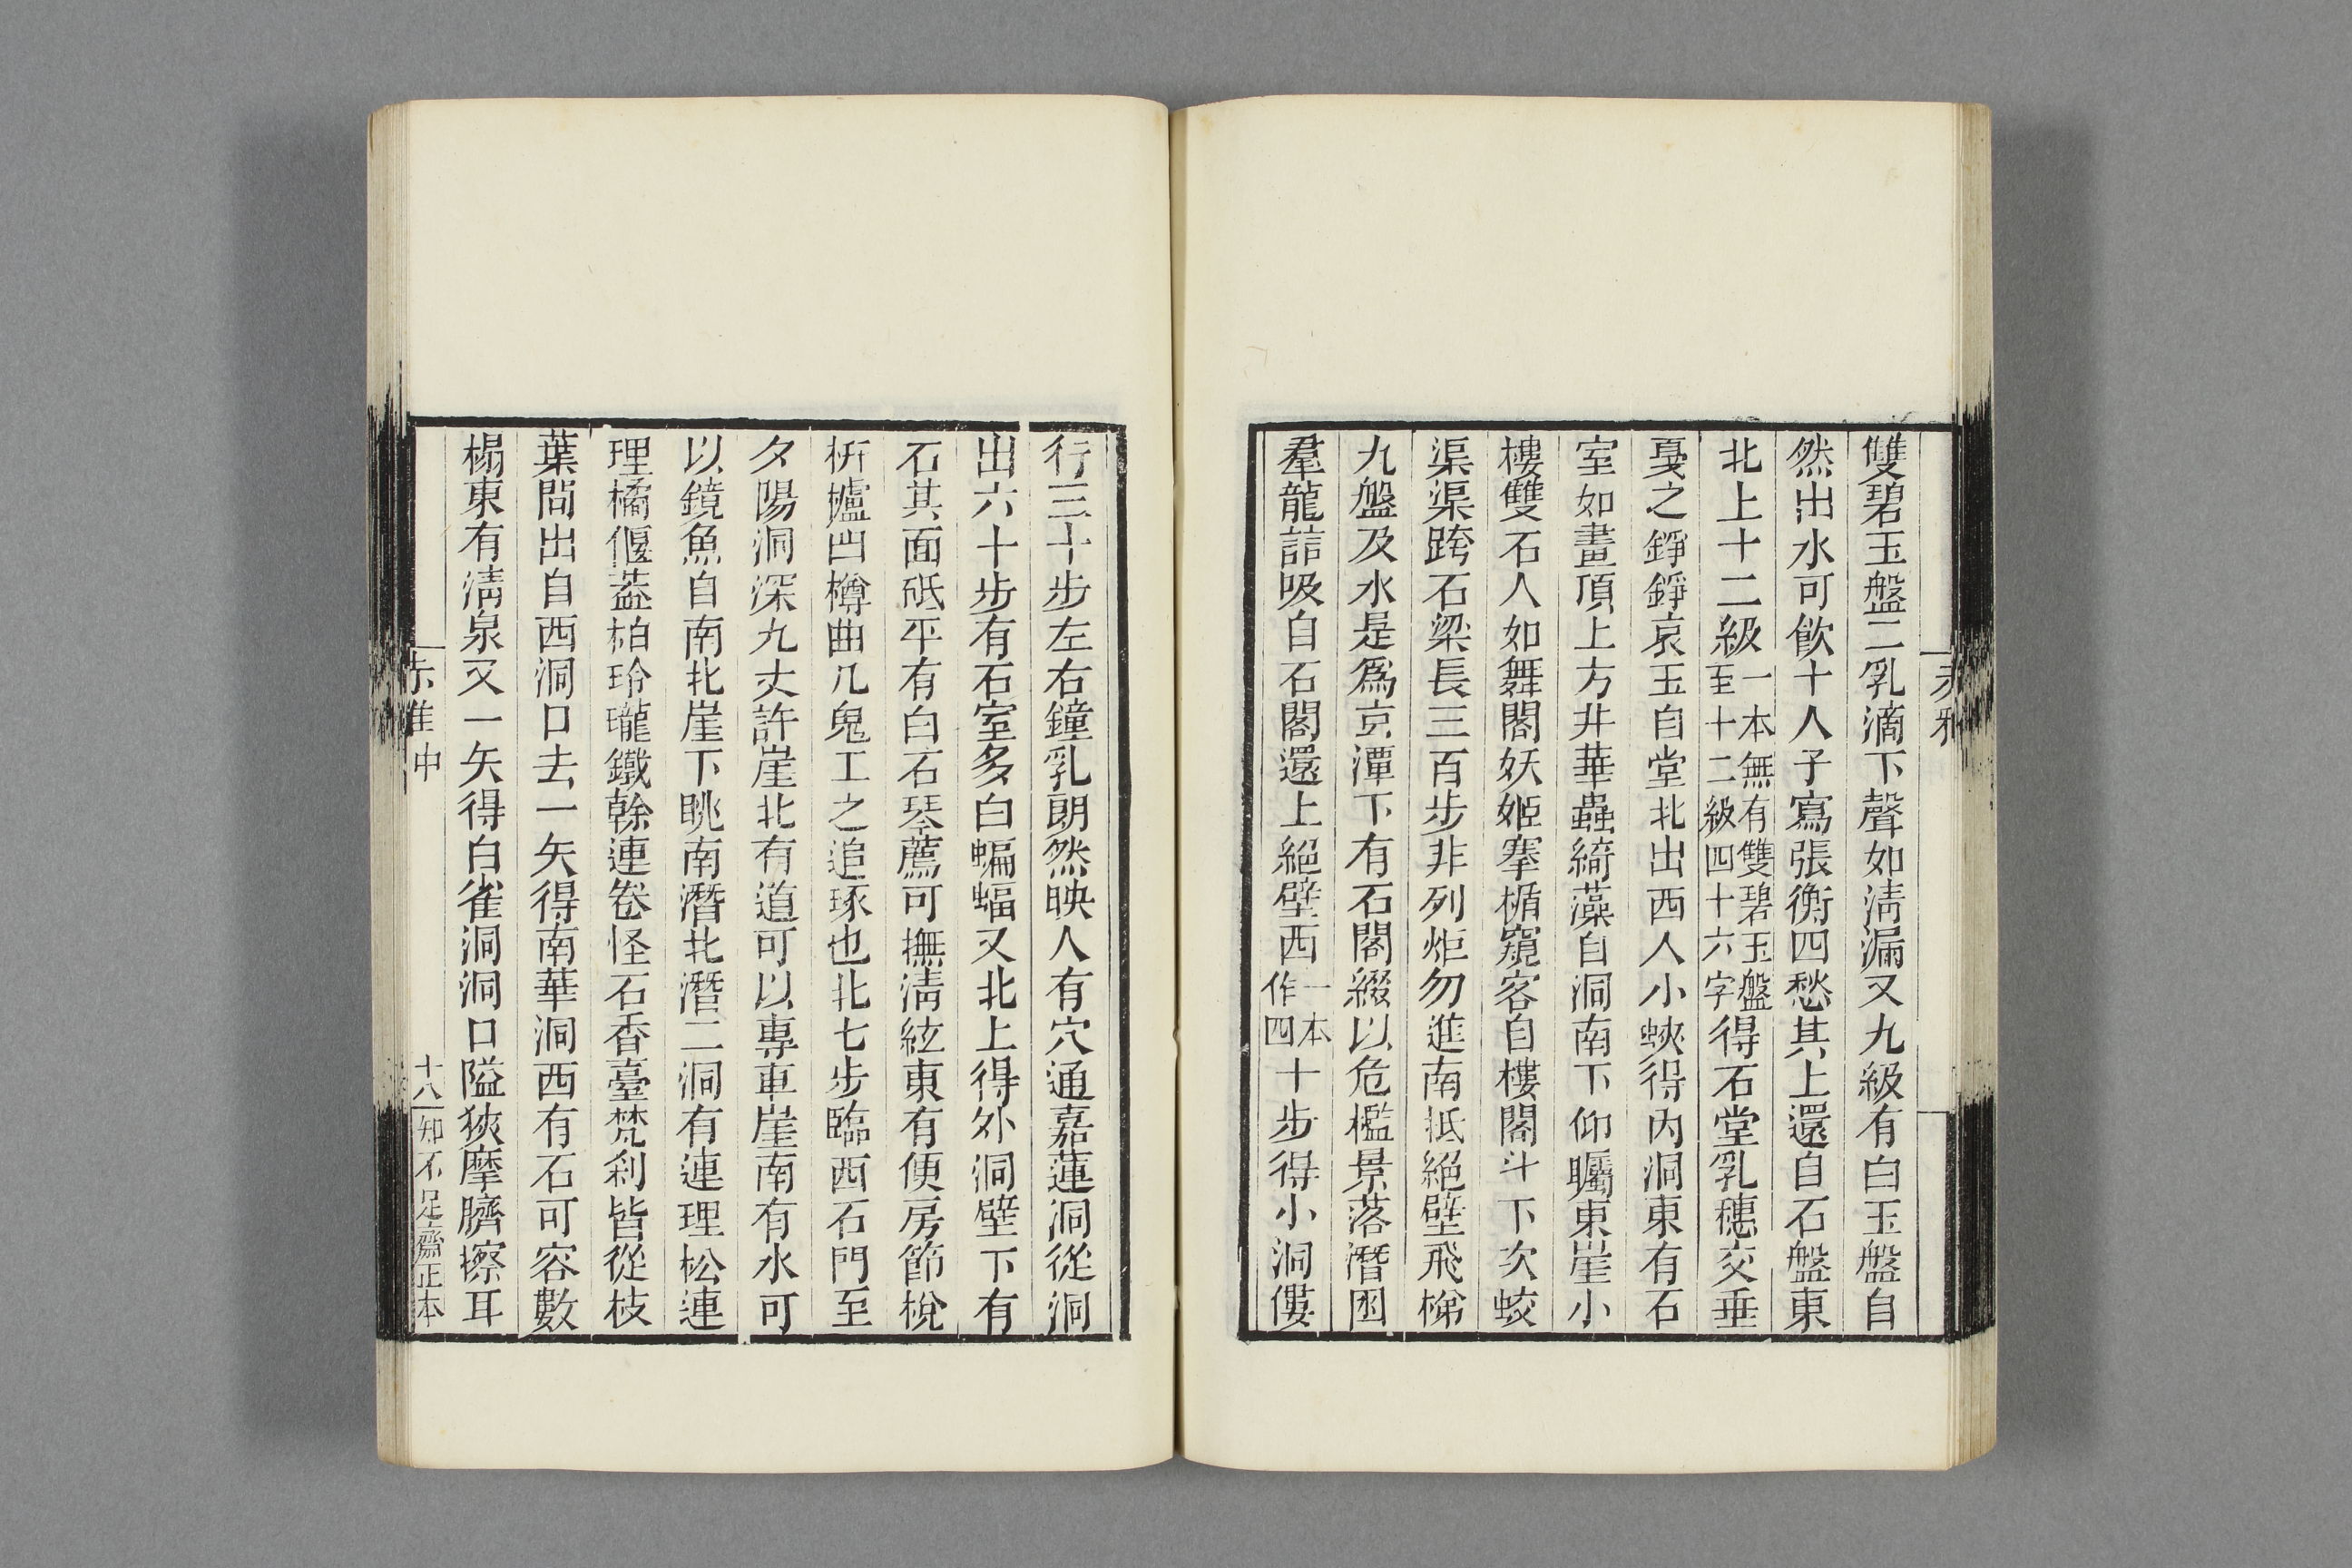 雙碧玉盤二乳滴下聲如淸漏又九級有白玉盤自
然出水可飮十人子寫張衡四愁其上還自石盤東
北上十二級一本無有雙碧玉盤至十二級四十六字得石堂乳穗交垂
戞之錚錚哀玉自堂北出西人小蛺得內洞東有石
室如畫頂上方井華蟲綺藻自洞南下仰矚東崖小
樓雙石人如舞閣妖姬搴楯窺客自樓閣斗下次蛟
渠渠跨石梁長三百步非列炬勿進南抵絕壁飛梯
九盤及水是爲京潭下有石閣綴以危檻景落潛囦
羣龍詰吸自石閣還上絕壁西一本作四十步得小洞僂
行三十步左右鐘乳朗然映人有穴通嘉蓮洞從洞
出六十步有石室多白蝙蝠又北上得外洞壁下有
石其面砥平有白石琴薦可撫淸絃東有便房節梲
枅攎凹樽曲几鬼工之追琢也北七步臨西石門至
夕陽洞深九丈許崖北有道可以專車崖南有水可
以鏡魚自南北崖下眺南潛北潛二洞有連理松連
理橘偃葢柏玲瓏鐵榦連卷怪石香臺梵刹皆從枝
葉問出自西洞口去一矢得南華洞西有石可容數
榻東有淸泉又一矢得白雀洞洞口隘狹摩臍擦耳
赤雅中
十八
知不足齋正本
赤雅